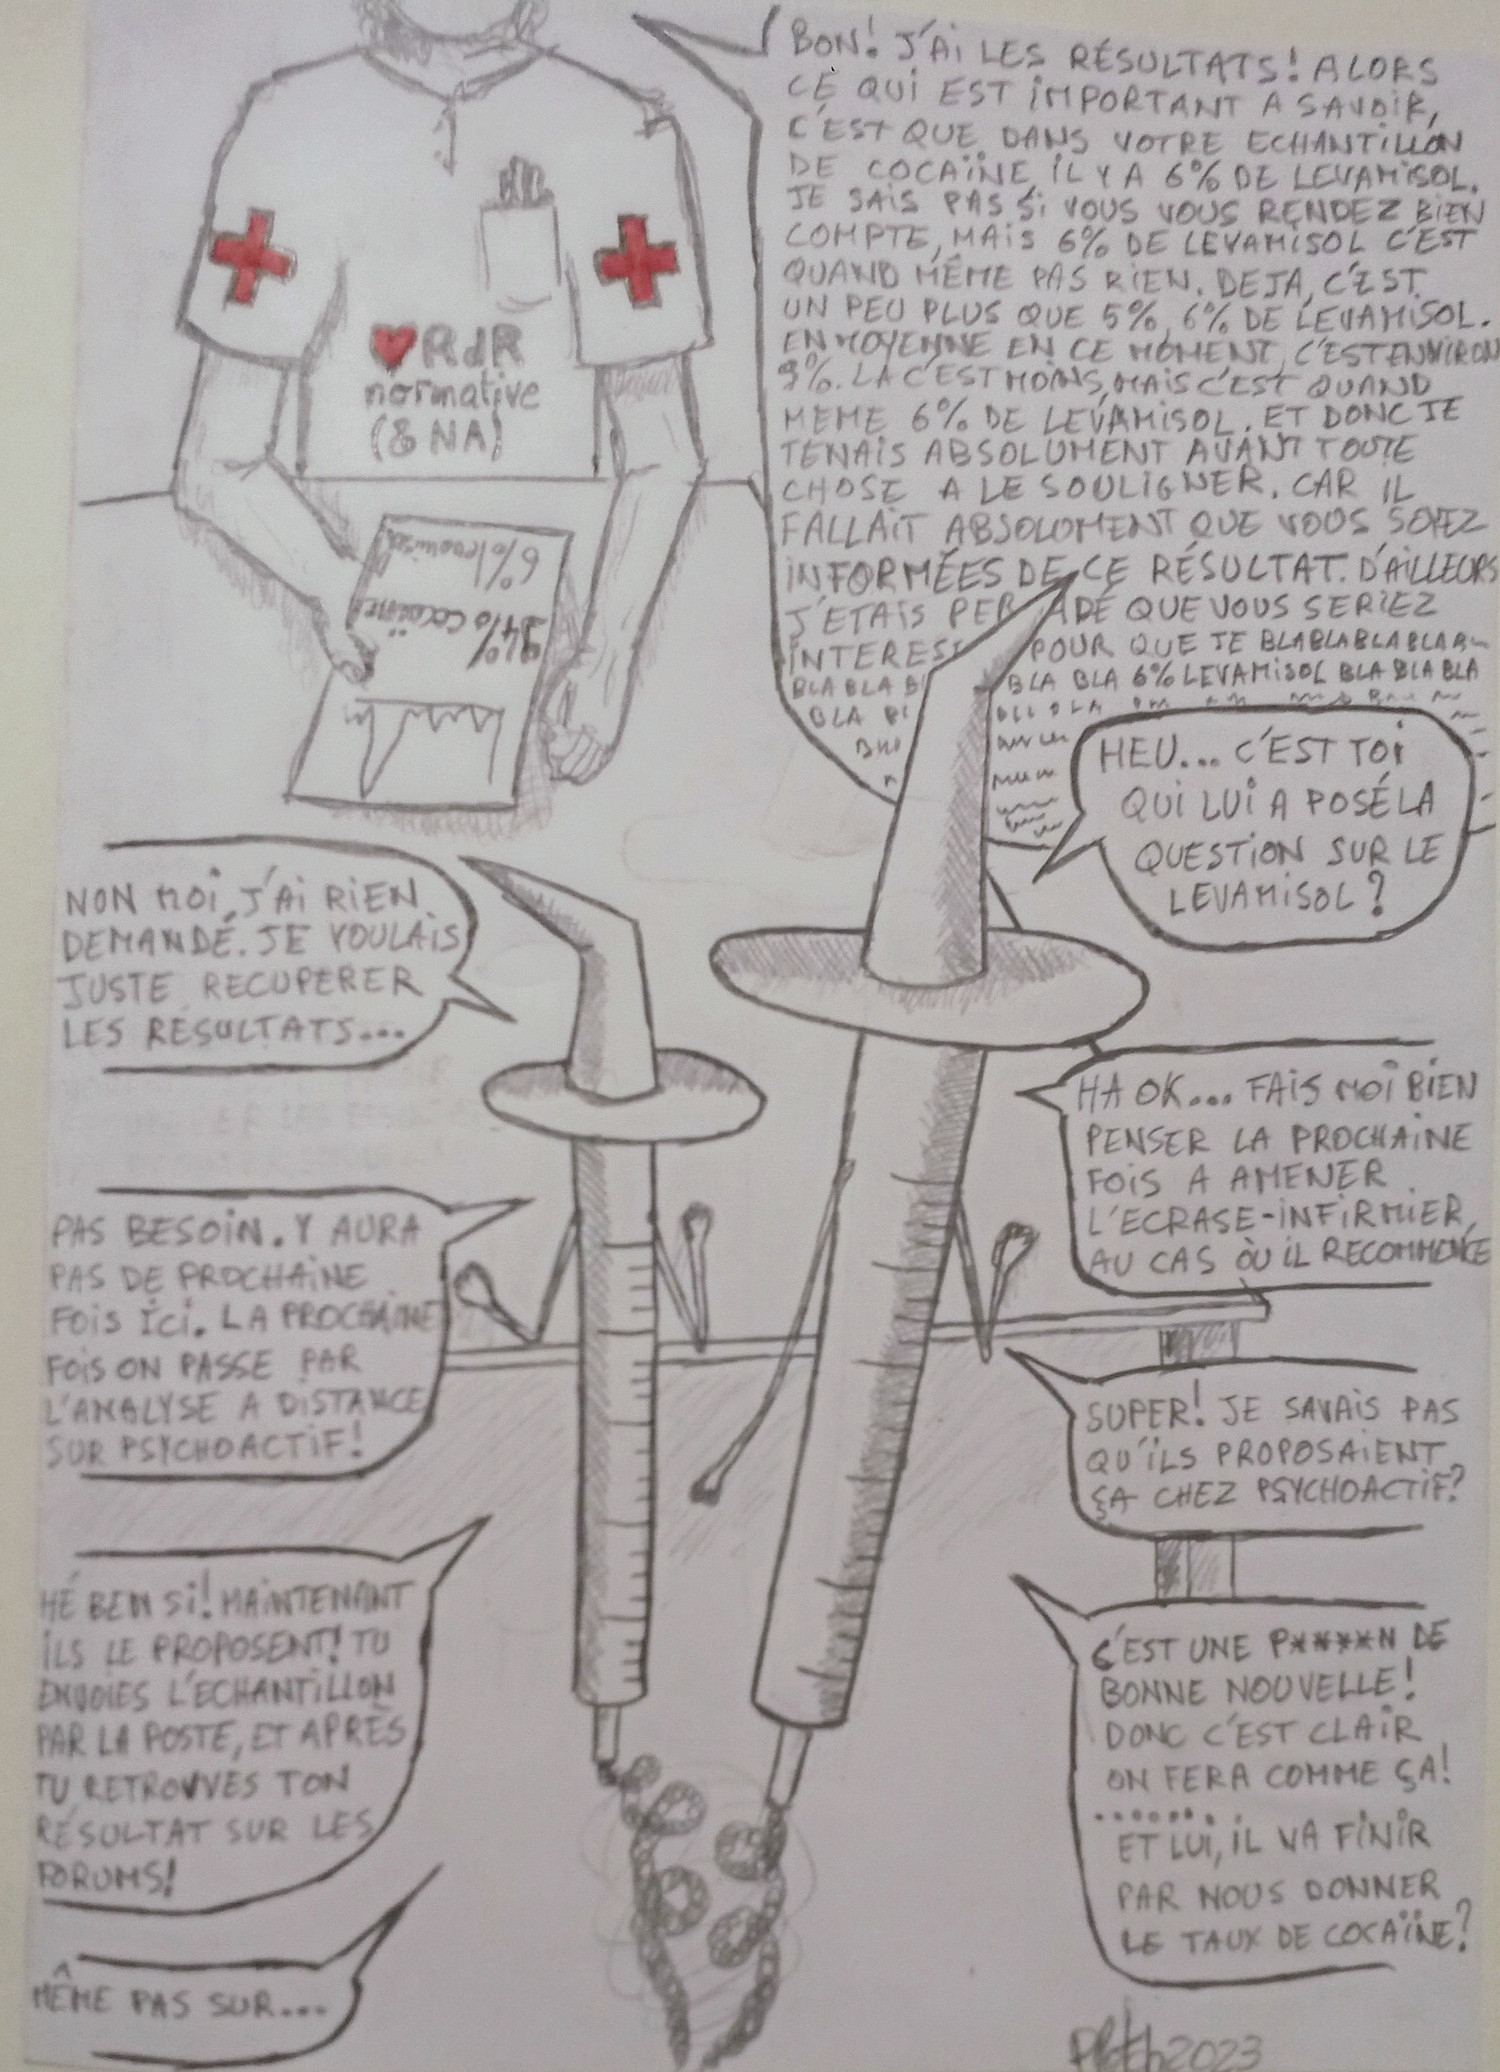 BON! J'AI LES RÉSULTATS! ALORS
CE QUI EST IMPORTANT A SAVOIR,
C'EST QUE DANS VOTRE ECHANTILLON
DE COCAÏNE IL Y A 6% DE LEVAMISOL.
JE SAIS PAS SI VOUS VOUS RENDEZ BIEN
COMPTE, MAIS 6% DE LEVAMISOL C'EST
QUAND MÊME PAS RIEN. DEJA, C'EST
UN PEU PLUS QUE 5%, 6% DE LEVAMISOL.
EN MOYENNE EN CE MOMENT, C'EST ENVIRON
9%. LA C'EST MOINS, MAIS C'EST QUAND
MEME 6% DE LEVAMISOL. ET DONC JE
TENAIS ABSOLUMENT AVANT TOUTE
CHOSE A LE SOULIGNER. CAR IL
FALLAIT ABSOLOMENT QUE VOUS SOYEZ
INFORMÉES DE CE RÉSULTAT. D'AILLEURS
J'ETAIS PER ADÉ QUE VOUS SERIEZ
INTERES POUR QUE JE BLABLABLABLABLA
BLA BLA B BLA BLA 6% LEVAMISOL BLA BLA BLA
BLA
♥ RdR
normative
(& NA)
6% levamisol
94% cocaïne
HEU... C'EST TOI
QUI LUI A POSÉ LA
QUESTION SUR LE
LEVAMISOL?
NON MOI, J'AI RIEN
DEMANDÉ. JE VOULAIS
JUSTE RECUPERER
LES RÉSULTATS...
HA OK... FAIS MOI BIEN
PENSER LA PROCHAINE
FOIS A AMENER
L'ECRASE-INFIRMIER,
AU CAS OÙ IL RECOMMENCE
PAS BESOIN. Y AURA
PAS DE PROCHAINE
FOIS ICI. LA PROCHAINE
FOIS ON PASSE PAR
L'ANALYSE A DISTANCE
SUR PSYCHOACTIF!
SUPER! JE SAVAIS PAS
QU'ILS PROPOSAIENT
ÇA CHEZ PSYCHOACTIF?
HÉ BEN SI! MAINTENANT
ILS LE PROPOSENT! TU
ENVOIES L'ECHANTILLON
PAR LA POSTE, ET APRÈS
TU RETROUVES TON
RÉSULTAT SUR LES
FORUMS!
C'EST UNE P****N DE
BONNE NOUVELLE!
DONC C'EST CLAIR
ON FERA COMME ÇA!
........
ET LUI, IL VA FINIR
PAR NOUS DONNER
LE TAUX DE COCAÏNE?
MÊME PAS SUR...
2023